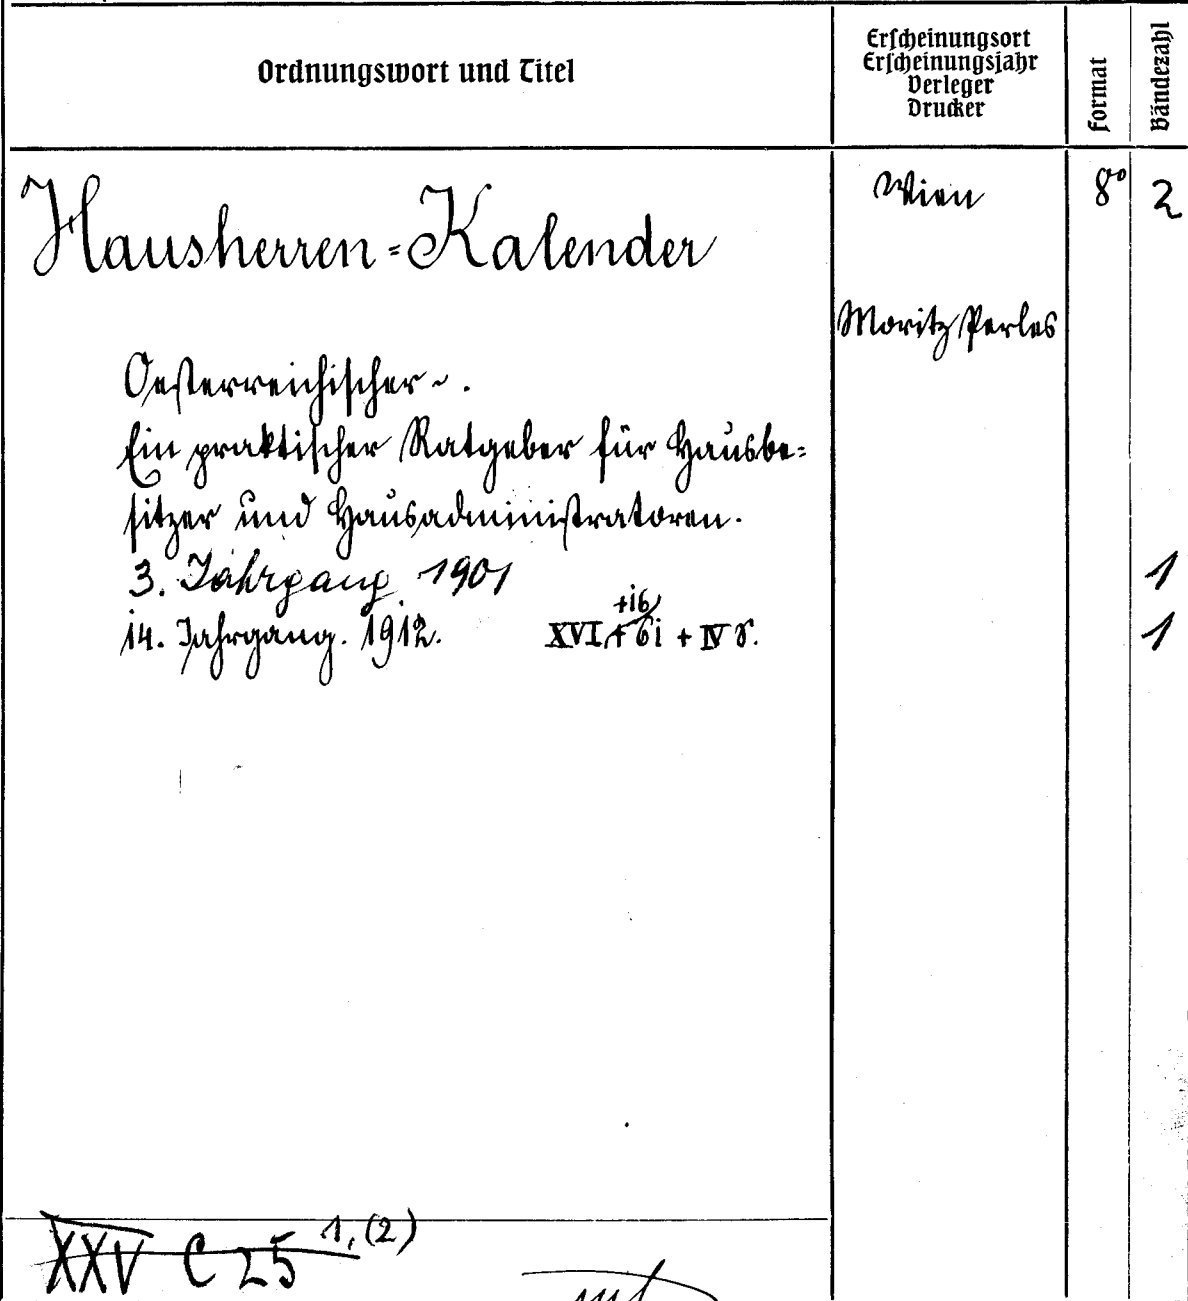 Ordnungswort und Titel
Erscheinungsort
Erscheinungsjahr
Verleger
Drucker
Format
Bändezahl
Hausherren-Kalender
Wien
8° 2
Moritz Perles
Oesterreichischer ~.
Ein praktischer Ratgeber für Hausbe-
sitzer und Hausadministratoren.
3. Jahrgang 1901 1
+16
14. Jahrgang. 1912. XVI + 61 + IV S. 1
XXV C 25 1, (2)